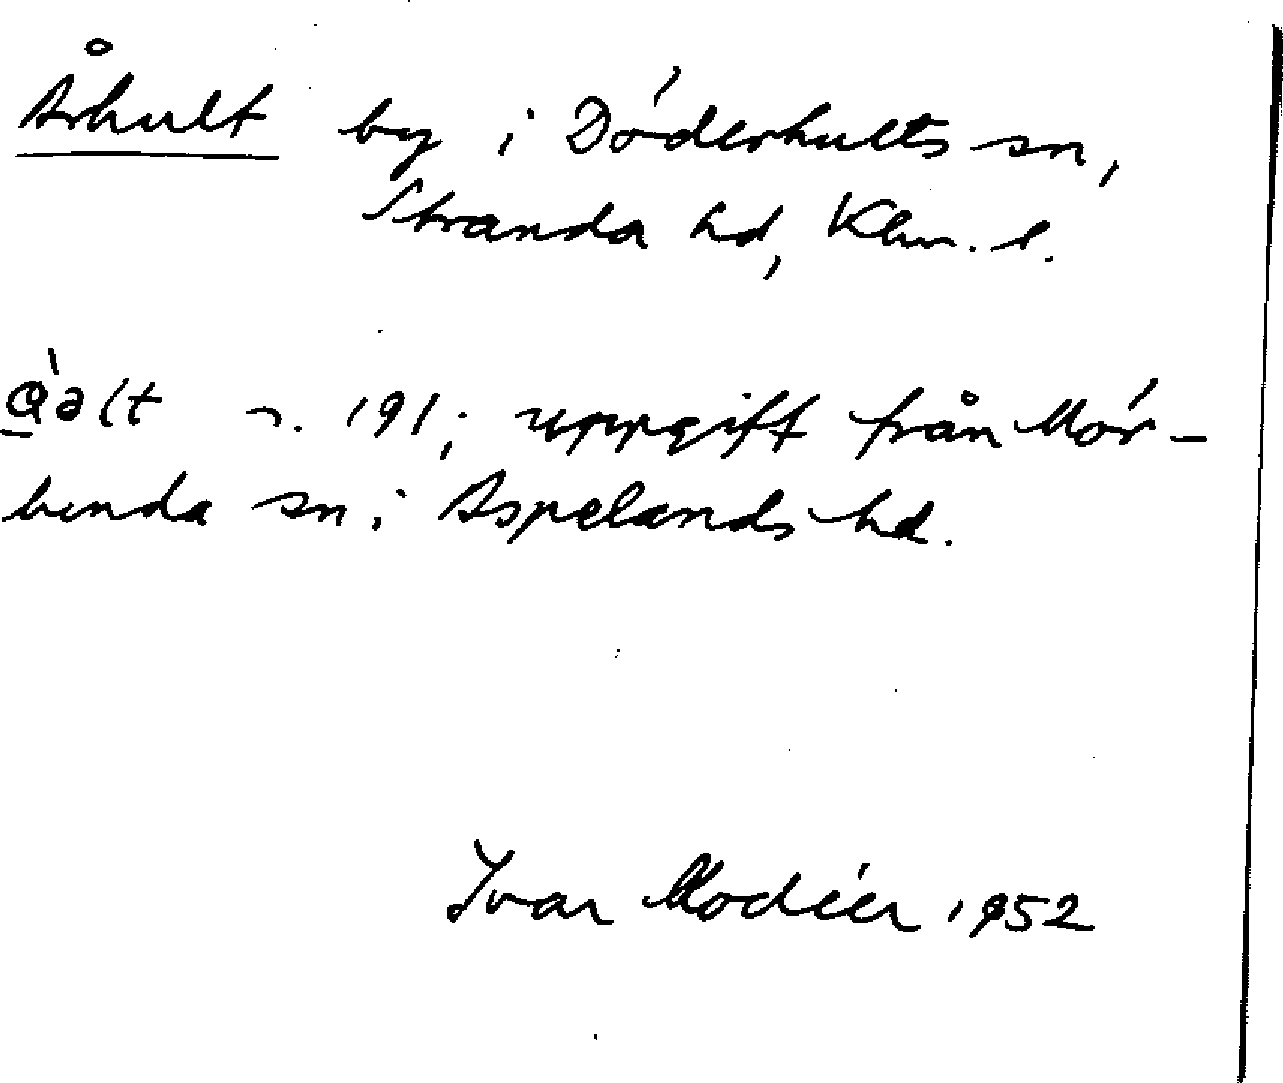 Århult by i Döderhults sn,
Stranda hd, Klm. l.
s. 191; uppgift från Mör-
lunda sn i Aspelands hd.
Ivar Modéer 1952